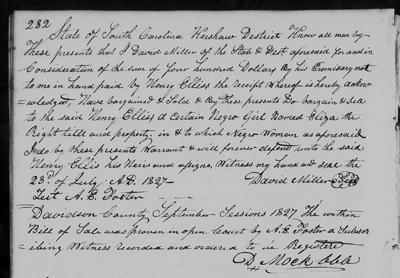 282
State of South Carolina Kershaw District Know all men by
These presents that I David Miller of the State & Dist. aforesaid for and in
Consideration of the sum of Four hundred Dollars By his Promisary not
to me in hand paid by Henry Elliss the receipt whereof is hereby acknow
=wledged, Have bargained & Sold & By these presents Do bargain & sell
to the said Henry Ellis a Certain Negro Girl Named Eliza the
Right title and property in & to which Negro Woman as aforesaid
I do by these presents Warrant & will forever defend unto the said
Henry Ellis his Heirs and assigns, Witness my hand and seal the
23d. of July A.D. 1827
David Miller Seal
Test A. E. Foster
Davidson County September Sessions 1827 The within
Bill of Sale was proven in open Court by A. E. Foster a Subscr
ibing Witness recorded and ordered to be Registered
D Mock cbb